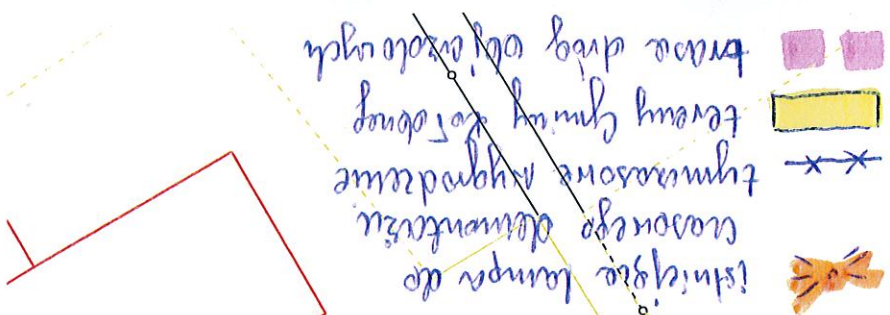 istniejące lampa do
czasowego demontażu
tymczasowe wygrodzenie
tereny Gminy
trasa dróg objazdowych